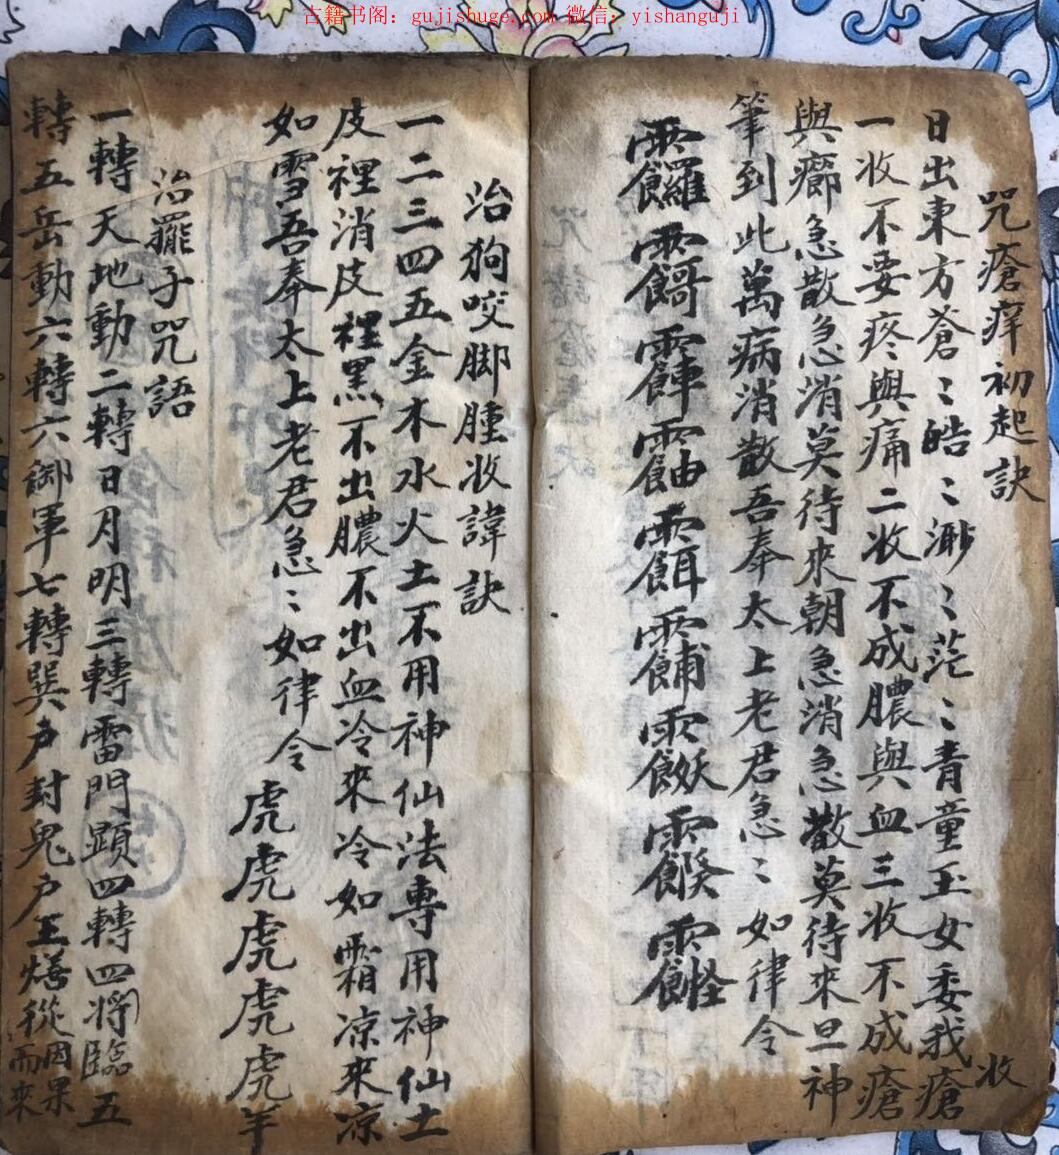 古籍书阁：gujishuge.com 微信：yishanguji
咒瘡痒初起訣
日出東方蒼〻皓〻渺〻茫〻青童玉女委我收瘡
一收不要疼與痛二收不成膿與血三收不成瘡
與癤急散急消莫待來朝急消急散莫待來旦神
筆到此萬病消散吾奉太上老君急〻如律令
治狗咬脚腫收諱訣
一二三四五金木水火土不用神仙法專用神仙土
皮裡消皮裡黑不出膿不出血冷來冷如霜凉來凉
如雪吾奉太上老君急〻如律令
虎虎虎虎虎羊
治羅子咒語
一轉天地動二轉日月明三轉雷門顕四轉四將臨五
轉五岳動六轉六御軍七轉巽户封鬼户從因果而來